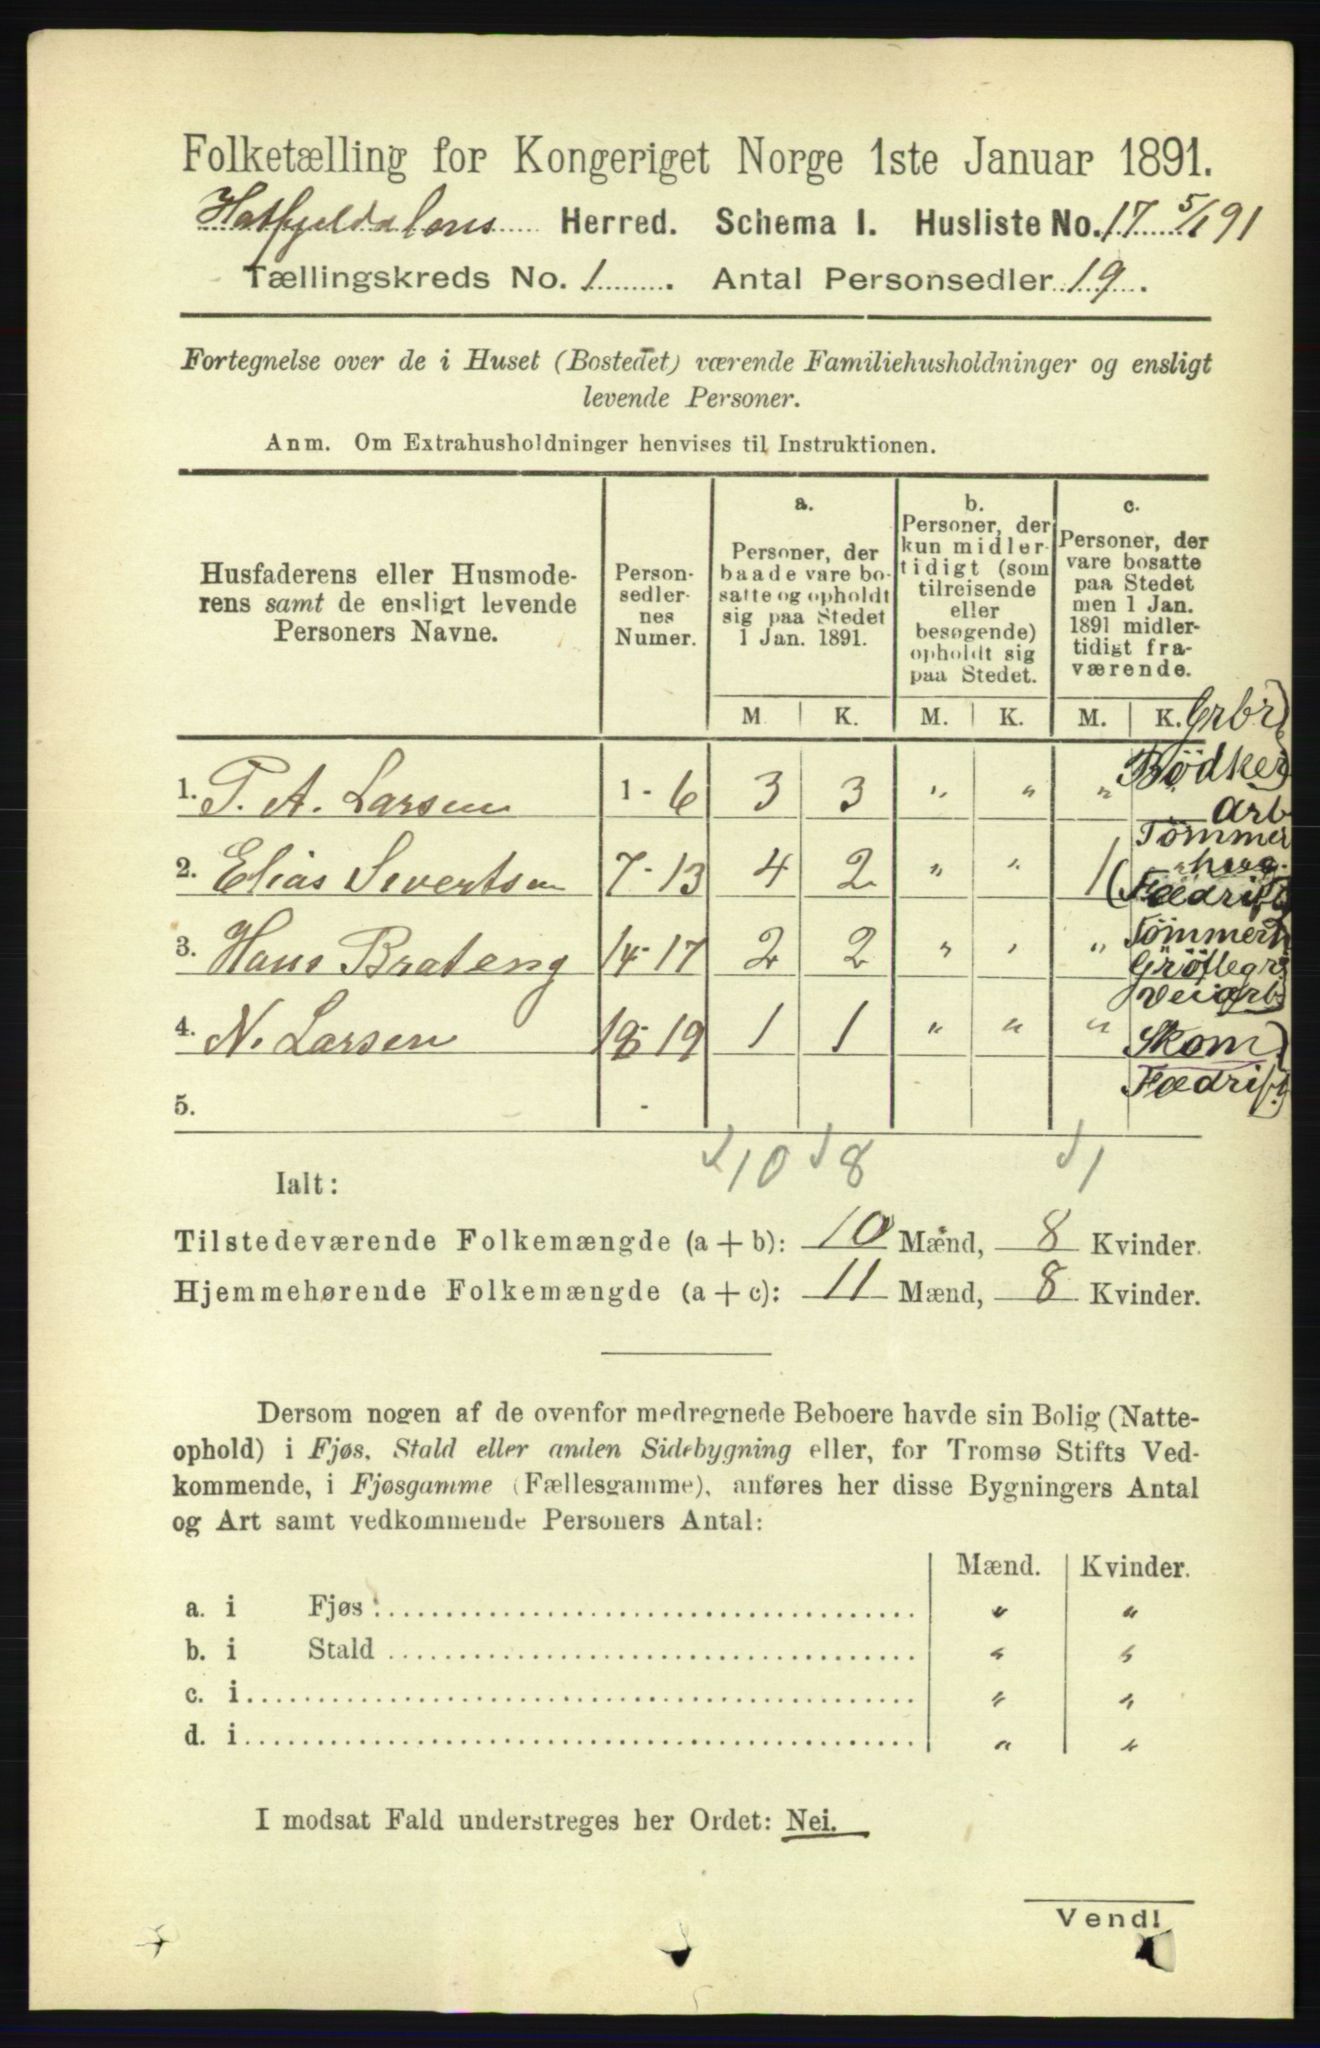 Folketælling for Kongeriget Norge 1ste Januar 1891.
Hatfjelddalens Herred. Schema I. Husliste No. 17 5/1 91
Tællingskreds No. 1. Antal Personsedler 19.
Fortegnelse over de i Huset (Bostedet) værende Familiehusholdninger og ensligt
levende Personer.
Anm. Om Extrahusholdninger henvises til Instruktionen.
Husfaderens eller Husmode-
rens samt de ensligt levende
Personers Navne.
Person-
sedler-
nes
Numer.
a.
Personer, der
baade vare bo-
satte og opholdt
sig paa Stedet
1 Jan. 1891.
b.
Personer, der
kun midler-
tidigt (som
tilreisende
eller
besøgende)
opholdt sig
paa Stedet.
c.
Personer, der
vare bosatte
paa Stedet
men 1 Jan.
1891 midler-
tidigt fra-
værende.
M. K. M. K. M. K. Grbr
1. T. A. Larsen 1 - 6 3 3 " " " Bødker
Arb
Tømmer
2. Elias Sivertsen 7 - 13 4 2 " " 1
Fædrift
3. Hans Brateng 14 - 17 2 2 " " " Tømmerh
Grøftegr
Veiarb
4. N. Larsen 18 - 19 1 1 " " " Skom
Fædrift
5. -
10 8 1
Ialt:
Tilstedeværende Folkemængde (a + b): 10 Mænd, 8 Kvinder.
Hjemmehørende Folkemængde (a + c): 11 Mænd, 8 Kvinder.
Dersom nogen af de ovenfor medregnede Beboere havde sin Bolig (Natte-
ophold) i Fjøs, Stald eller anden Sidebygning eller, for Tromsø Stifts Ved-
kommende, i Fjøsgamme (Fællesgamme), anføres her disse Bygningers Antal
og Art samt vedkommende Personers Antal:
Mænd. Kvinder.
a. i Fjøs " "
b. i Stald " "
c. i " "
d. i " "
I modsat Fald understreges her Ordet: Nei.
Vend!